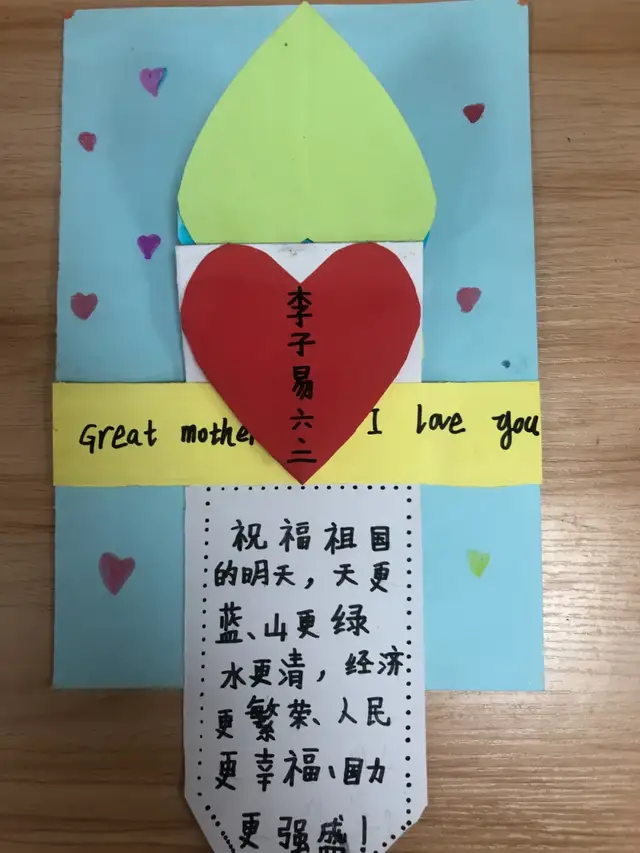 李子易六二
Great mother I love you
祝福祖国
的明天，天更
蓝、山更绿
水更清，经济
更繁荣、人民
更幸福、国力
更强盛！